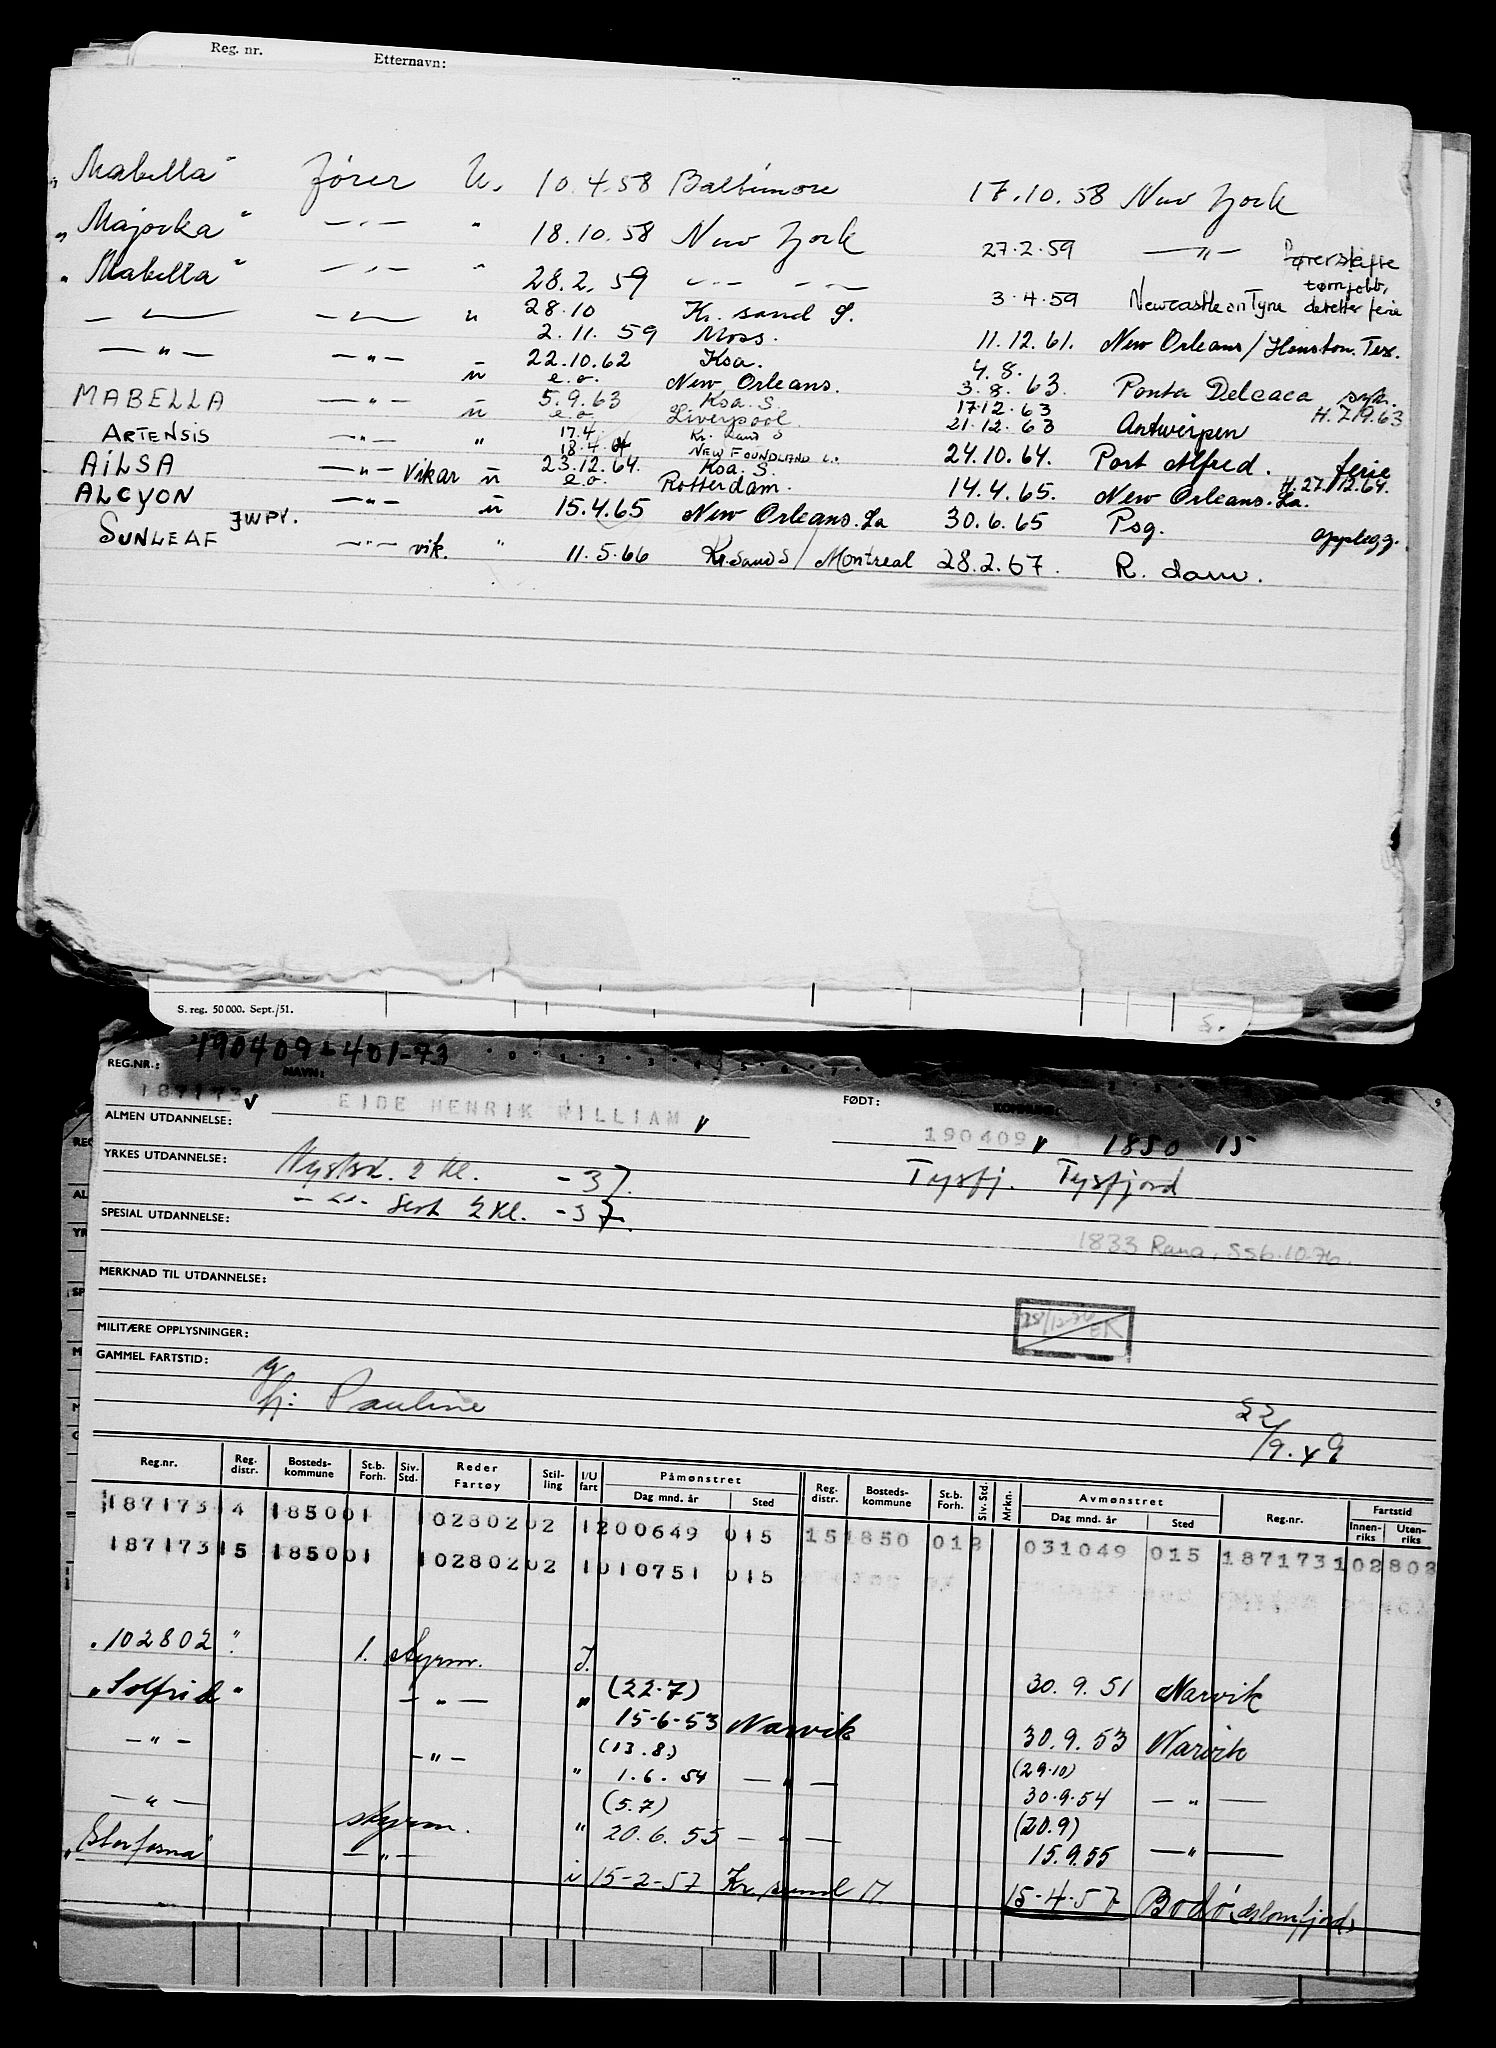 Reg. nr. Etternavn:
„Mabella" fører U. 10.4.58 Baltimore 17.10.58 New York
„Majorka" —"— " 18.10.58 New York 27.2.59 —"— Førerskifte
„Mabella" —"— " 28.2.59 —"— —"— 3.4.59 Newcastle on Tyne tørnjobb, deretter ferie
—"— —"— u 28.10 Kr. sand S.
2.11.59 Moss. 11.12.61. New Orleans/Houston. Tex.
—"— —"— u 22.10.62 Ksa. 4.8.
e.o. New Orleans. 3.8.63. Ponta Delcaca syk.
MABELLA —"— u 5.9.63 Ksa. S. 17.12.63 H. 7.9.63
e.o. Liverpool. 21.12.63 Antwerpen
ARTENSIS —"— " 17.4. Kr. Sand S
18.4.64 NEW FOUNDLAND 24.10.64. Port Alfred. ferie
AILSA —"— vikar u 23.12.64. Ksa. S. H. 27.12.64.
e.o. Rotterdam. 14.4.65. New Orleans. La.
ALCYON —"— u 15.4.65 New Orleans. La 30.6.65 Psg. opplegg.
SUNLEAF JWPY. —"— vik. " 11.5.66 Kr.sand S/Montreal 28.2.67. R. dam.
S. reg. 50 000. Sept./51. S.
190409-401-73
REG.NR.: NAVN: FØDT: KOMMUNE:
187173 v EIDE HENRIK WILLIAM v 190409 v 1850 15
ALMEN UTDANNELSE:
Tysfj. Tysfjord
YRKES UTDANNELSE: Kystsk. 2 kl. -37.
—"— Sert 2 kl. -37.
SPESIAL UTDANNELSE:
1833 Rana, SSB.10.76.
MERKNAD TIL UTDANNELSE:
MILITÆRE OPPLYSNINGER:
GAMMEL FARTSTID:
Pauline 22/9.49
Reg.nr. Reg. distr. Bostedskommune St.b. Forh. Siv. Std. Reder Fartøy Stilling I/U fart Påmønstret Dag mnd. år Sted Reg. distr. Bostedskommune St.b. Forh. Siv. Std. Mrkn. Avmønstret Dag mnd. år Sted Reg.nr. Fartstid Innenriks Utenriks
187173 4 185001 102802 02 1 200649 015 15 1850 018 031049 015 187173 102802
187173 5 185001 102802 02 1 010751 015
„102802" 1. styrm. I. 30.9.51 Narvik
„Solfrid" —"— " (22.7)
15-6-53 Narvik 30.9.53 Narvik
—"— —"— " (13.8.) (29.10)
1.6.54 —"— 30.9.54 —"—
—"— styrm. " (5.7) (20.9)
20.6.55 —"— 15.9.55 —"—
„Storfosna" —"— i 15-2-57 Kr. sund N 15-4-57 Bodø